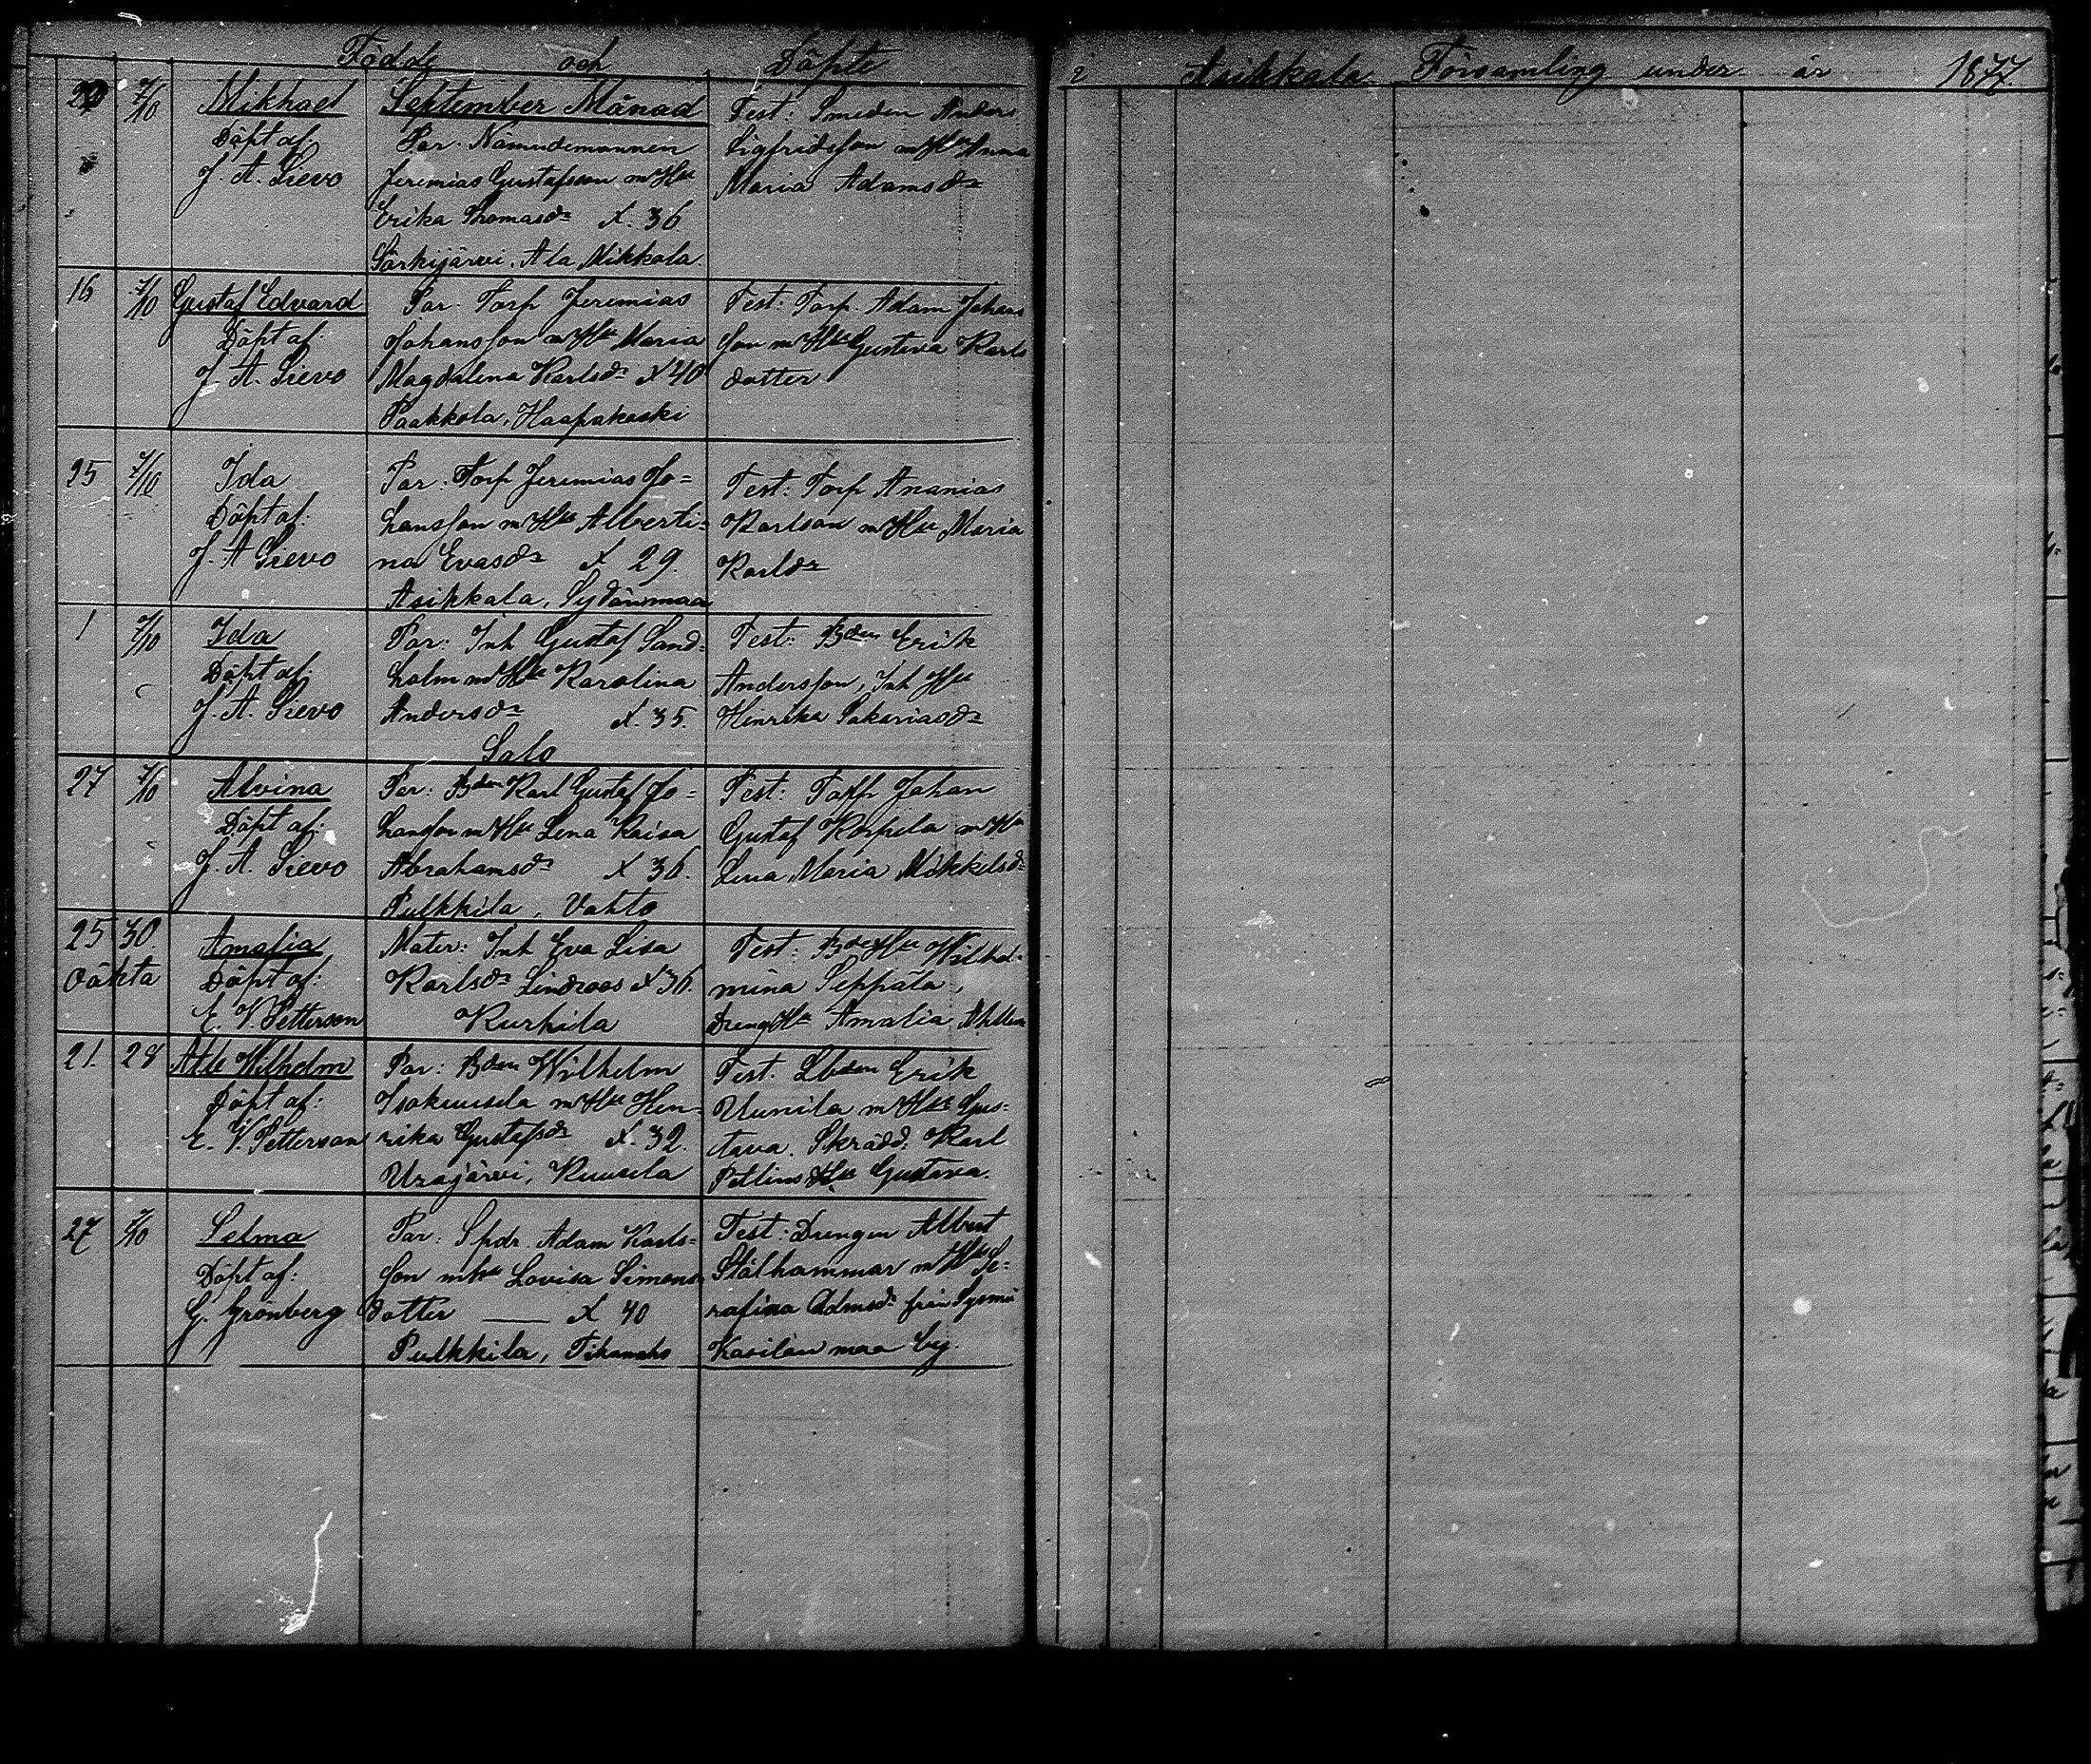 Födde och Döpte i Asikkala Församling under år 1877.
29 7/10 Mikhael
Döpt af
J. A. Sievo
September Månad
Par. Nämndemannen
Jeremias Gustafsson m Hu
Erika Thomasdr X. 36.
Särkijärvi, Ala Mikkola.
Test: Smeden Anders
Sigfridsson m Hu Anna
Maria Adamsdr
16 7/10 Gustaf Edvard
Döpt af:
J. A. Sievo
Par. Torp Jeremias
Johansson m Hu Maria
Magdalena Karlsdr X 40
Paakkola, Haapakoski
Test: Torp. Adam Johans
son m Hu Gustava Karls
dotter
25 7/10 Ida
Döpt af:
J. A Sievo
Par: Torp Jeremias Jo=
hansson m Hu Alberti=
na Evasdr X 29.
Asikkala, Sydänmaa
Test: Torp Ananias
Karlson m Hu Maria
Karldr
1 7/10 Ida
Döpt af:
J. A. Sievo
Par: Inh Gustaf Sand=
holm m Hu Karolina
Andersdr X. 35.
Salo
Test: Bden Erik
Andersson, Inh Hu
Hinrika Sakariasdr
27 7/10 Alvina
Döpt af:
J. A. Sievo
Par: Bden Karl Gustaf Jo=
hanson m Hu Lena Kaisa
Abrahamsdr X 36.
Pulkkila, Vahto
Test: Torp Johan
Gustaf Korpela m Hu
Lena Maria Mikkelsdr
25 30. Amalia
oäkta Döpt af:
E. V. Petterson
Mater: Inh Eva Lisa
Karlsdr Lindroos X 36.
Kurhila
Test: Bde Hu Wilhel=
mina Seppäla,
Dreng Hu Amalia
21. 28 Atle Wilhelm
Döpt af:
E. V. Petterson
Par: Bden Wilhelm
Isokuusela m Hu Hen=
rika Gustafsdr X. 32.
Urajärvi, Kuusela
Test. Lbden Erik
Uunila m Hu Gus=
tava. Skrädd: Karl
Petlins Hu Gustava.
27 7/10 Selma
Döpt af:
G. Grönberg
Par: Spdr. Adam Karls=
son m hu Lovisa Simons
dotter — X 40
Pulkkila,
Test: Drengen Albert
Stålhammar m Hu Se=
rafina Admsdr från Sysmä
Karilanmaa by.